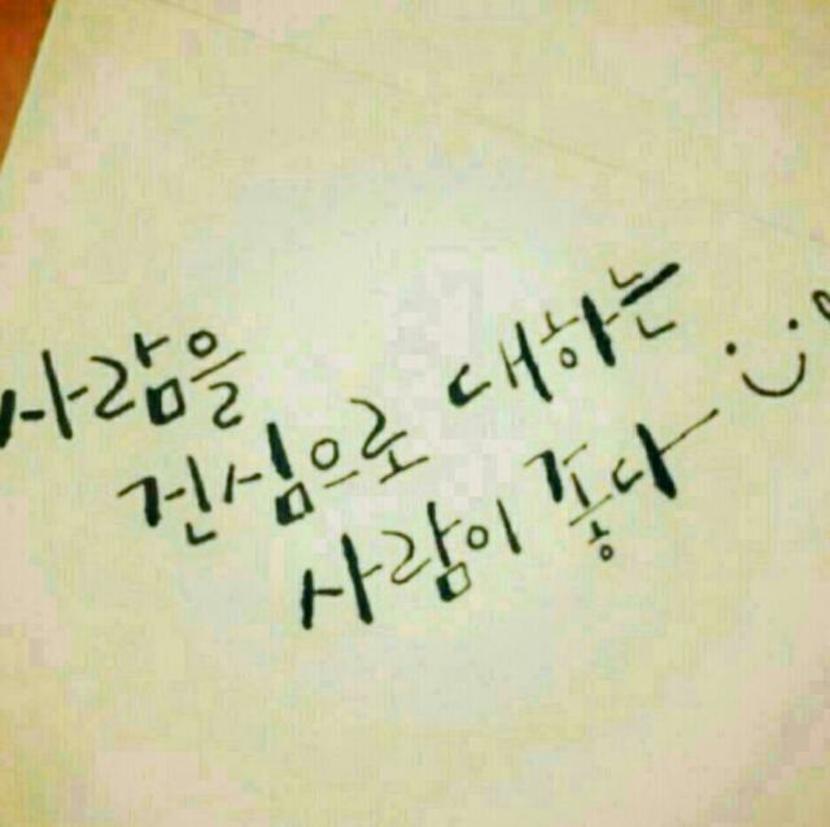 사람을
진심으로 대하는
사람이 좋다 :)